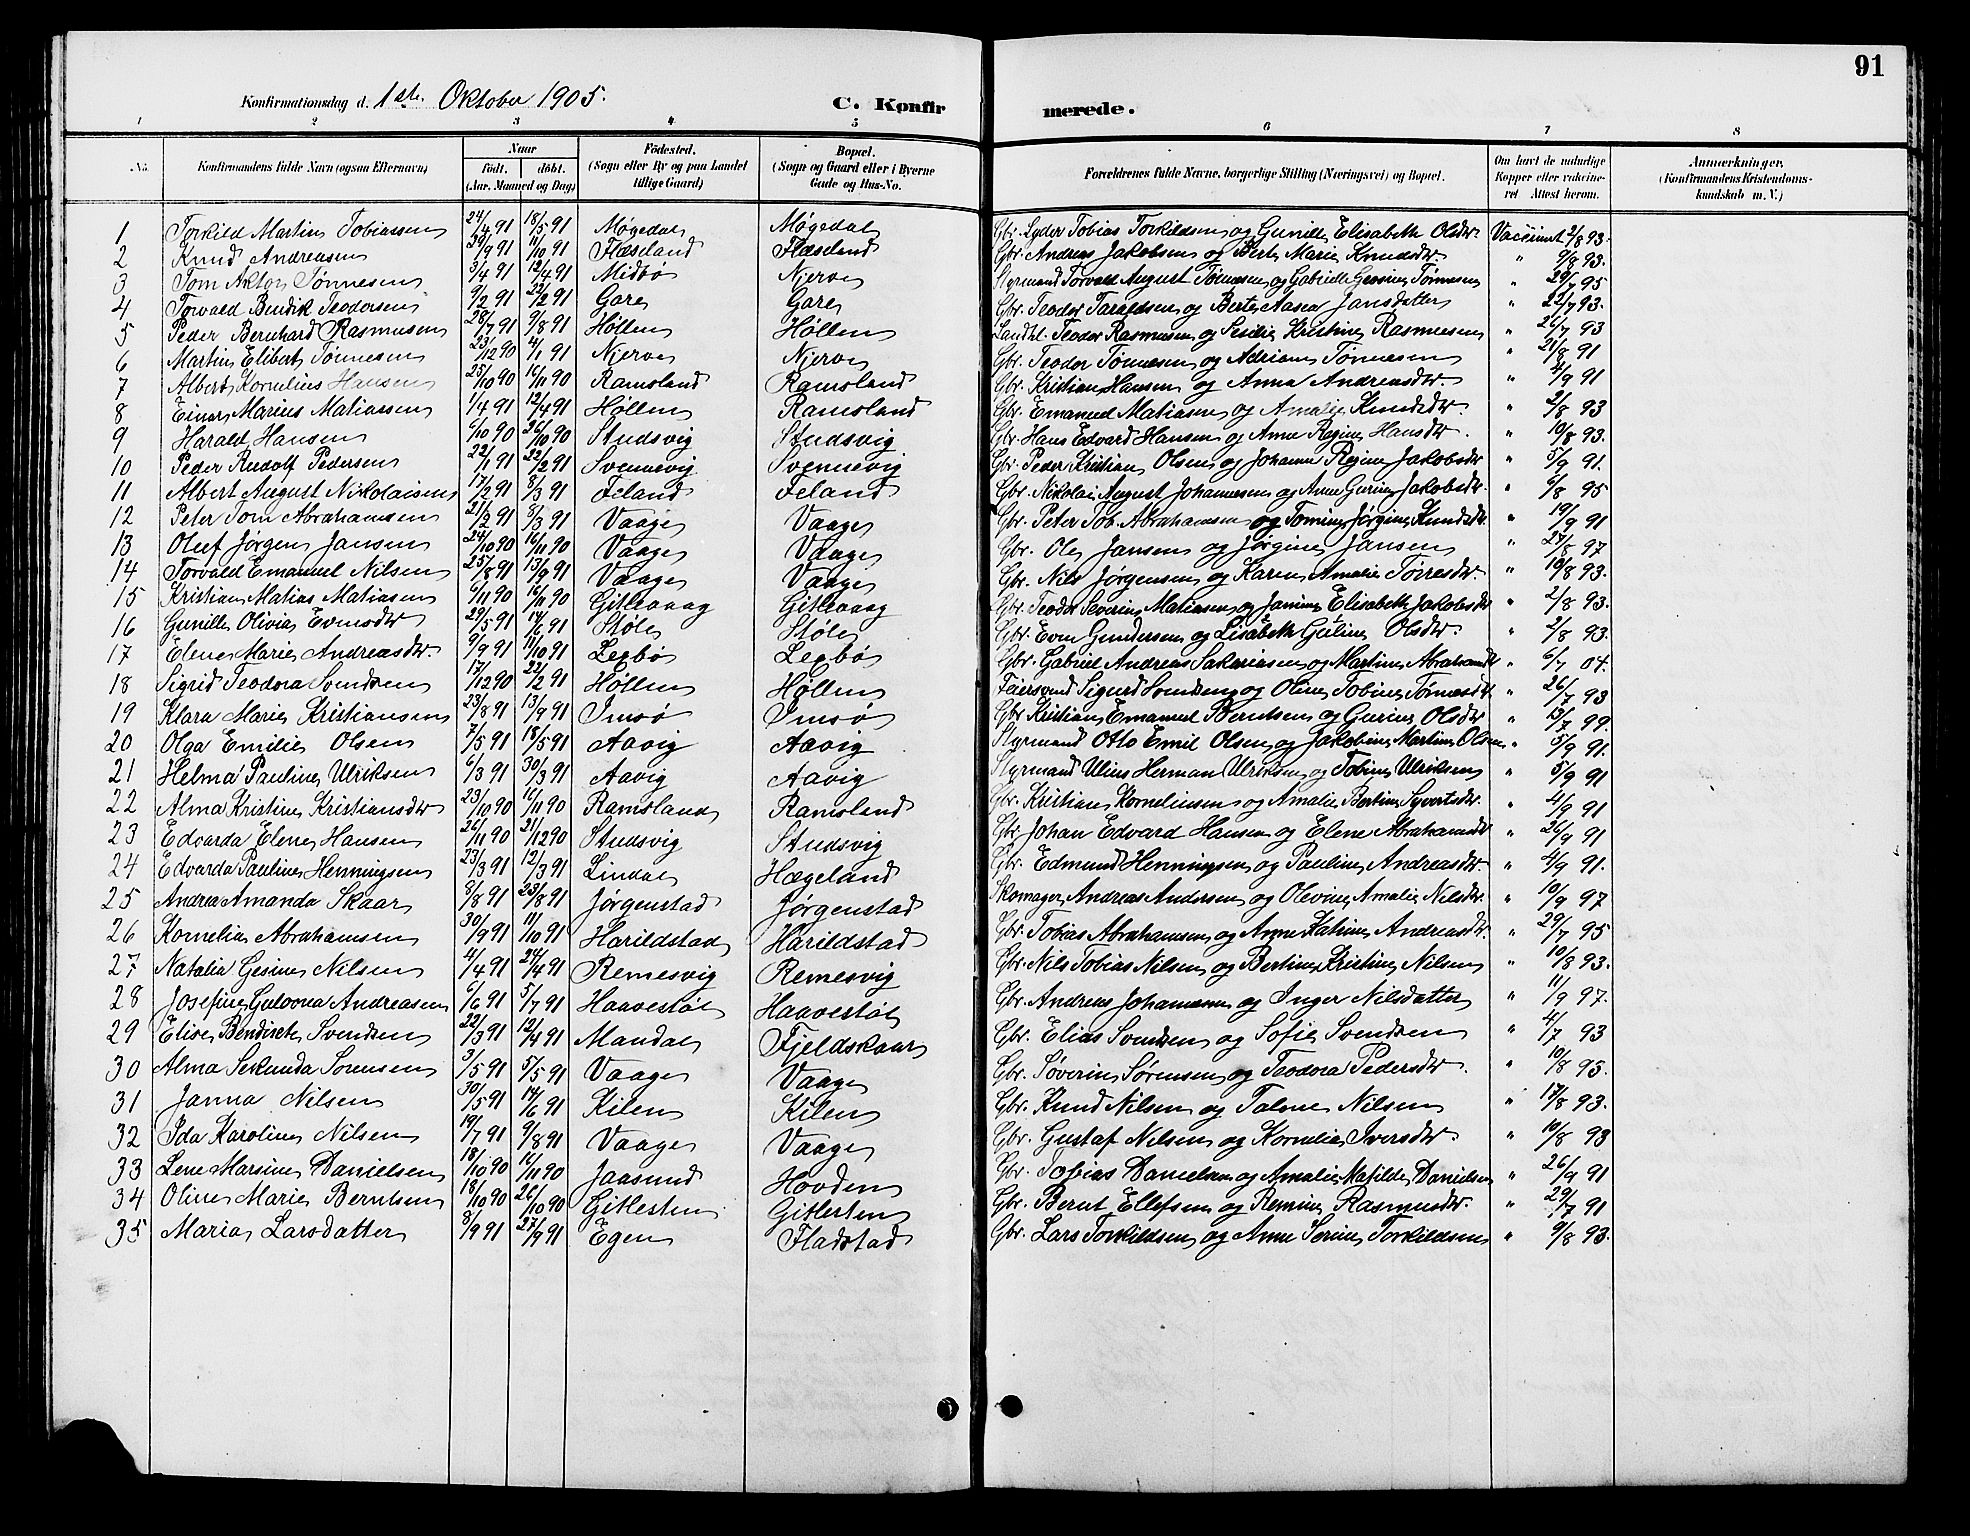 91
Konfirmationsdag d. 1ste Oktober 1905. C. Konfirmerede.
1 2 3 4 5 6 7 8
No. Konfirmandens fulde Navn (ogsaa Efternavn) Naar født. døbt. (Aar, Maaned og Dag) Fødested. (Sogn eller By og paa Landet tillige Gaard) Bopæl. (Sogn og Gaard eller i Byerne Gade og Hus-No. Forældrenes fulde Navne, borgerlige Stilling (Næringsvei) og Bopæl. Om havt de naturlige Kopper eller vakcineret Attest herom. Anmærkninger, (Konfirmandens Kristendomskundskab m. V.)
1 Torkild Martin Tobiassen 24/4 91 18/5 91 Møgedal Møgedal Gbr. Lyder Tobias Torkildsen og Gunille Elisabeth Olsdtr. Vaccineret 2/8 93.
2 Knud Andreasen 29/9 91 11/10 91 Flæseland Flæseland Gbr. Andreas Jakobsen og Berte Marie Knudsdtr " 9/8 93.
3 Tom Anton Tønnesen 3/4 91 12/4 91 Midbø Njerve Styrmand Torvald August Tønnesen og Gabrielle Gesine Tønnesen " 29/7 95
4 Torvald Bendik Teodorsen 9/2 91 22/2 91 Gare Gare Gbr. Teodor Taraldsen og Berte Aasea Jansdatter " 22/7 93.
5 Peder Bernhard Rasmusen 28/7 91 9/8 91 Høllen Høllen Landhl. Teodor Rasmusen og Kristine Rasmusen " 26/7 93
6 Martin Elibert Tønnesen 23/12 90 4/1 91 Njerve Njerve Gbr. Teodor Tønnesen og Adriane Tønnesen " 21/8 91
7 Albert Kornelius Hansen 25/10 90 16/11 90 Ramsland Ramsland Gbr. Kristian Hansen og Anna Andreasdtr. " 4/9 91
8 Einar Marius Matiassen 1/4 91 12/4 91 Høllen Ramsland Gbr. Emanuel Matiasen og Amalie Knudsdtr. " 2/8 93
9 Harald Hansen 6/10 90 26/10 90 Studsvig Studsvig Gbr. Hans Edvard Hansen og Anne Regine Hansdtr. " 10/8 93.
10 Peder Rudolf Pedersen 22/1 91 22/2 91 Svennevig Svennevig Gbr. Peder Kristian Olsen og Johanne Regine Jakobsdtr " 5/9 91.
11 Albert August Nikolaisen 17/2 91 8/3 91 Feland Feland Gbr. Nikolai August Johannesen og Anne Gurine Jakobsdtr. " 6/8 95
12 Peter Tom Abrahamsen 21/2 91 8/3 91 Vaage Vaage Gbr. Peter Tob. Abrahamsen og Tomine Jørgine Knudsdtr. " 19/9 91
13 Oluf Jørgen Jansen 24/10 90 16/11 90 Vaage Vaage Gbr. Ole Jansen og Jørgine Jansen " 27/8 97
14 Torvald Emanuel Nilsen 25/8 91 13/9 91 Vaage Vaage Gbr. Nils Jørgensen og Karen Amalie Tørresdtr. " 10/8 93.
15 Kristian Matias Matiasen 9/11 90 16/11 90 Gitlevaag Gitlevaag Gbr. Teodor Severin Matiasen og Janine Elisabeth Jakobsdtr " 2/8 93.
16 Gunille Olivia Evensdtr 29/5 91 14/6 91 Støle Støle Gbr. Even Gundersen og Lisabeth Guline Olsdtr. " 2/8 93.
17 Elene Marie Andreasdtr. 9/9 91 11/10 91 Legbø Legbø Gbr. Gabriel Andreas Sakariasen og Martine Abrahamsdtr " 6/7 04.
18 Sigrid Teodora Svendsen 17/12 90 22/2 91 Høllen Høllen Feiersvend Sigurd Svendsen og Oline Tobine Tønnesdtr " 26/7 93
19 Klara Marie Kristiansen 23/8 91 13/9 91 Imsø Imsø Gbr Kristian Emanuel Berntsen og Gurine Olsdtr " 13/7 99.
20 Olga Emilie Olsen 7/5 91 18/5 91 Aavig Aavig Styrmand Otto Emil Olsen og Jakobine Martine Olsen " 5/9 91.
21 Helma Pauline Ulriksen 6/3 91 30/3 91 Aavig Aavig Styrmand Ulius Herman Ulriksen og Tobine Ulriksen " 5/9 91
22 Alma Kristine Kristiansdtr 23/10 90 16/11 90 Ramsland Ramsland Gbr. Kristian Kornelinsen og Amalie Bertine Syvertsdtr. " 4/9 91
23 Edvarda Elene Hansen 26/11 90 21/12 90 Studsvig Studsvig Gbr Johan Edvard Hansen og Elene Abrahamsdtr " 26/9 91
24 Edvarda Pauline Henningsen 23/3 91 12/3 91 Lindal Hægeland Gbr. Edmund Henningsen og Pauline Andreasdtr. " 4/9 91.
25 Andrea Amanda Skaar 8/8 91 23/8 91 Jørgenstad Jørgenstad Skomager Andreas Andersen og Olevine Amalie Nilsdtr. " 10/9 97
26 Kornelia Abrahamsen 30/9 91 11/10 91 Harildstad Harildstad Gbr. Tobias Abrahamsen og Anne Katrine Andreasdtr. " 29/7 95
27 Natalia Gesine Nilsen 4/4 91 24/4 91 Remesvig Remesvig Gbr. Nils Tobias Nilsen og Bertine Kristine Nilsen " 10/8 93.
28 Josefine Gulovna Andreasen 6/6 91 5/7 91 Haavestøl Haavestøl Gbr. Andreas Johannesen og Inger Nilsdatter " 11/9 97.
29 Elise Bendikte Svendsen 22/3 91 12/4 91 Mandal Fjeldskaar Gbr. Elias Svendsen og Sofie Svendsen " 4/7 93
30 Alma Sekunda Sørensen 3/5 91 5/5 91 Vaage Vaage Gbr. Søverin Sørensen og Teodora Pedersdtr. " 10/8 93.
31 Janna Nilsen 30/5 91 14/6 91 Kilen Kilen Gbr. Knud Nilsen og Talene Nilsen " 17/8 93.
32 Ida Karoline Nilsen 19/7 91 9/8 91 Vaage Vaage Gbr. Gustaf Nilsen og Kornelie Iversdtr. " 10/8 93
33 Lene Marsine Danielsen 18/10 90 16/11 90 Jaasund Hovden Gbr. Tobias Danielsen og Amalie Matilde Danielsen " 26/9 91
34 Oline Marie Berntsen 18/10 90 26/10 90 Gitlesten Gitlesten Gbr. Bernt Ellefsen og Remine Rasmusdtr. " 29/7 91
35 Maria Larsdatter 8/9 91 27/9 91 Egen Fladstad Gbr. Lars Torkildsen og Anne Serine Torkildsen " 9/8 93.